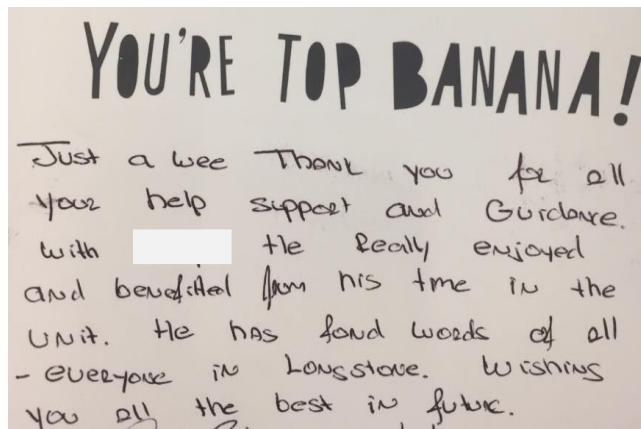 YOU'RE TOP BANANA!
Just a wee Thank you for all
your help support and Guidance.
with He Really enjoyed
and benefitted from his time in the
unit. He has fond words of all
- everyone in Longstone. Wishing
you all the best in future.